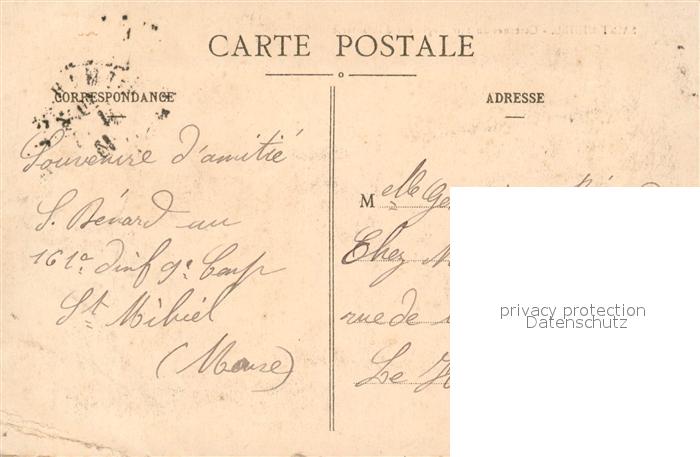 CARTE POSTALE
CORRESPONDANCE
ADRESSE
Souvenire d'amitié
S. Bénard au
161e d'inf 9e Comp
St Mihiel
(Meuse)
M elle
Chez
rue de
Le
privacy protection
Datenschutz